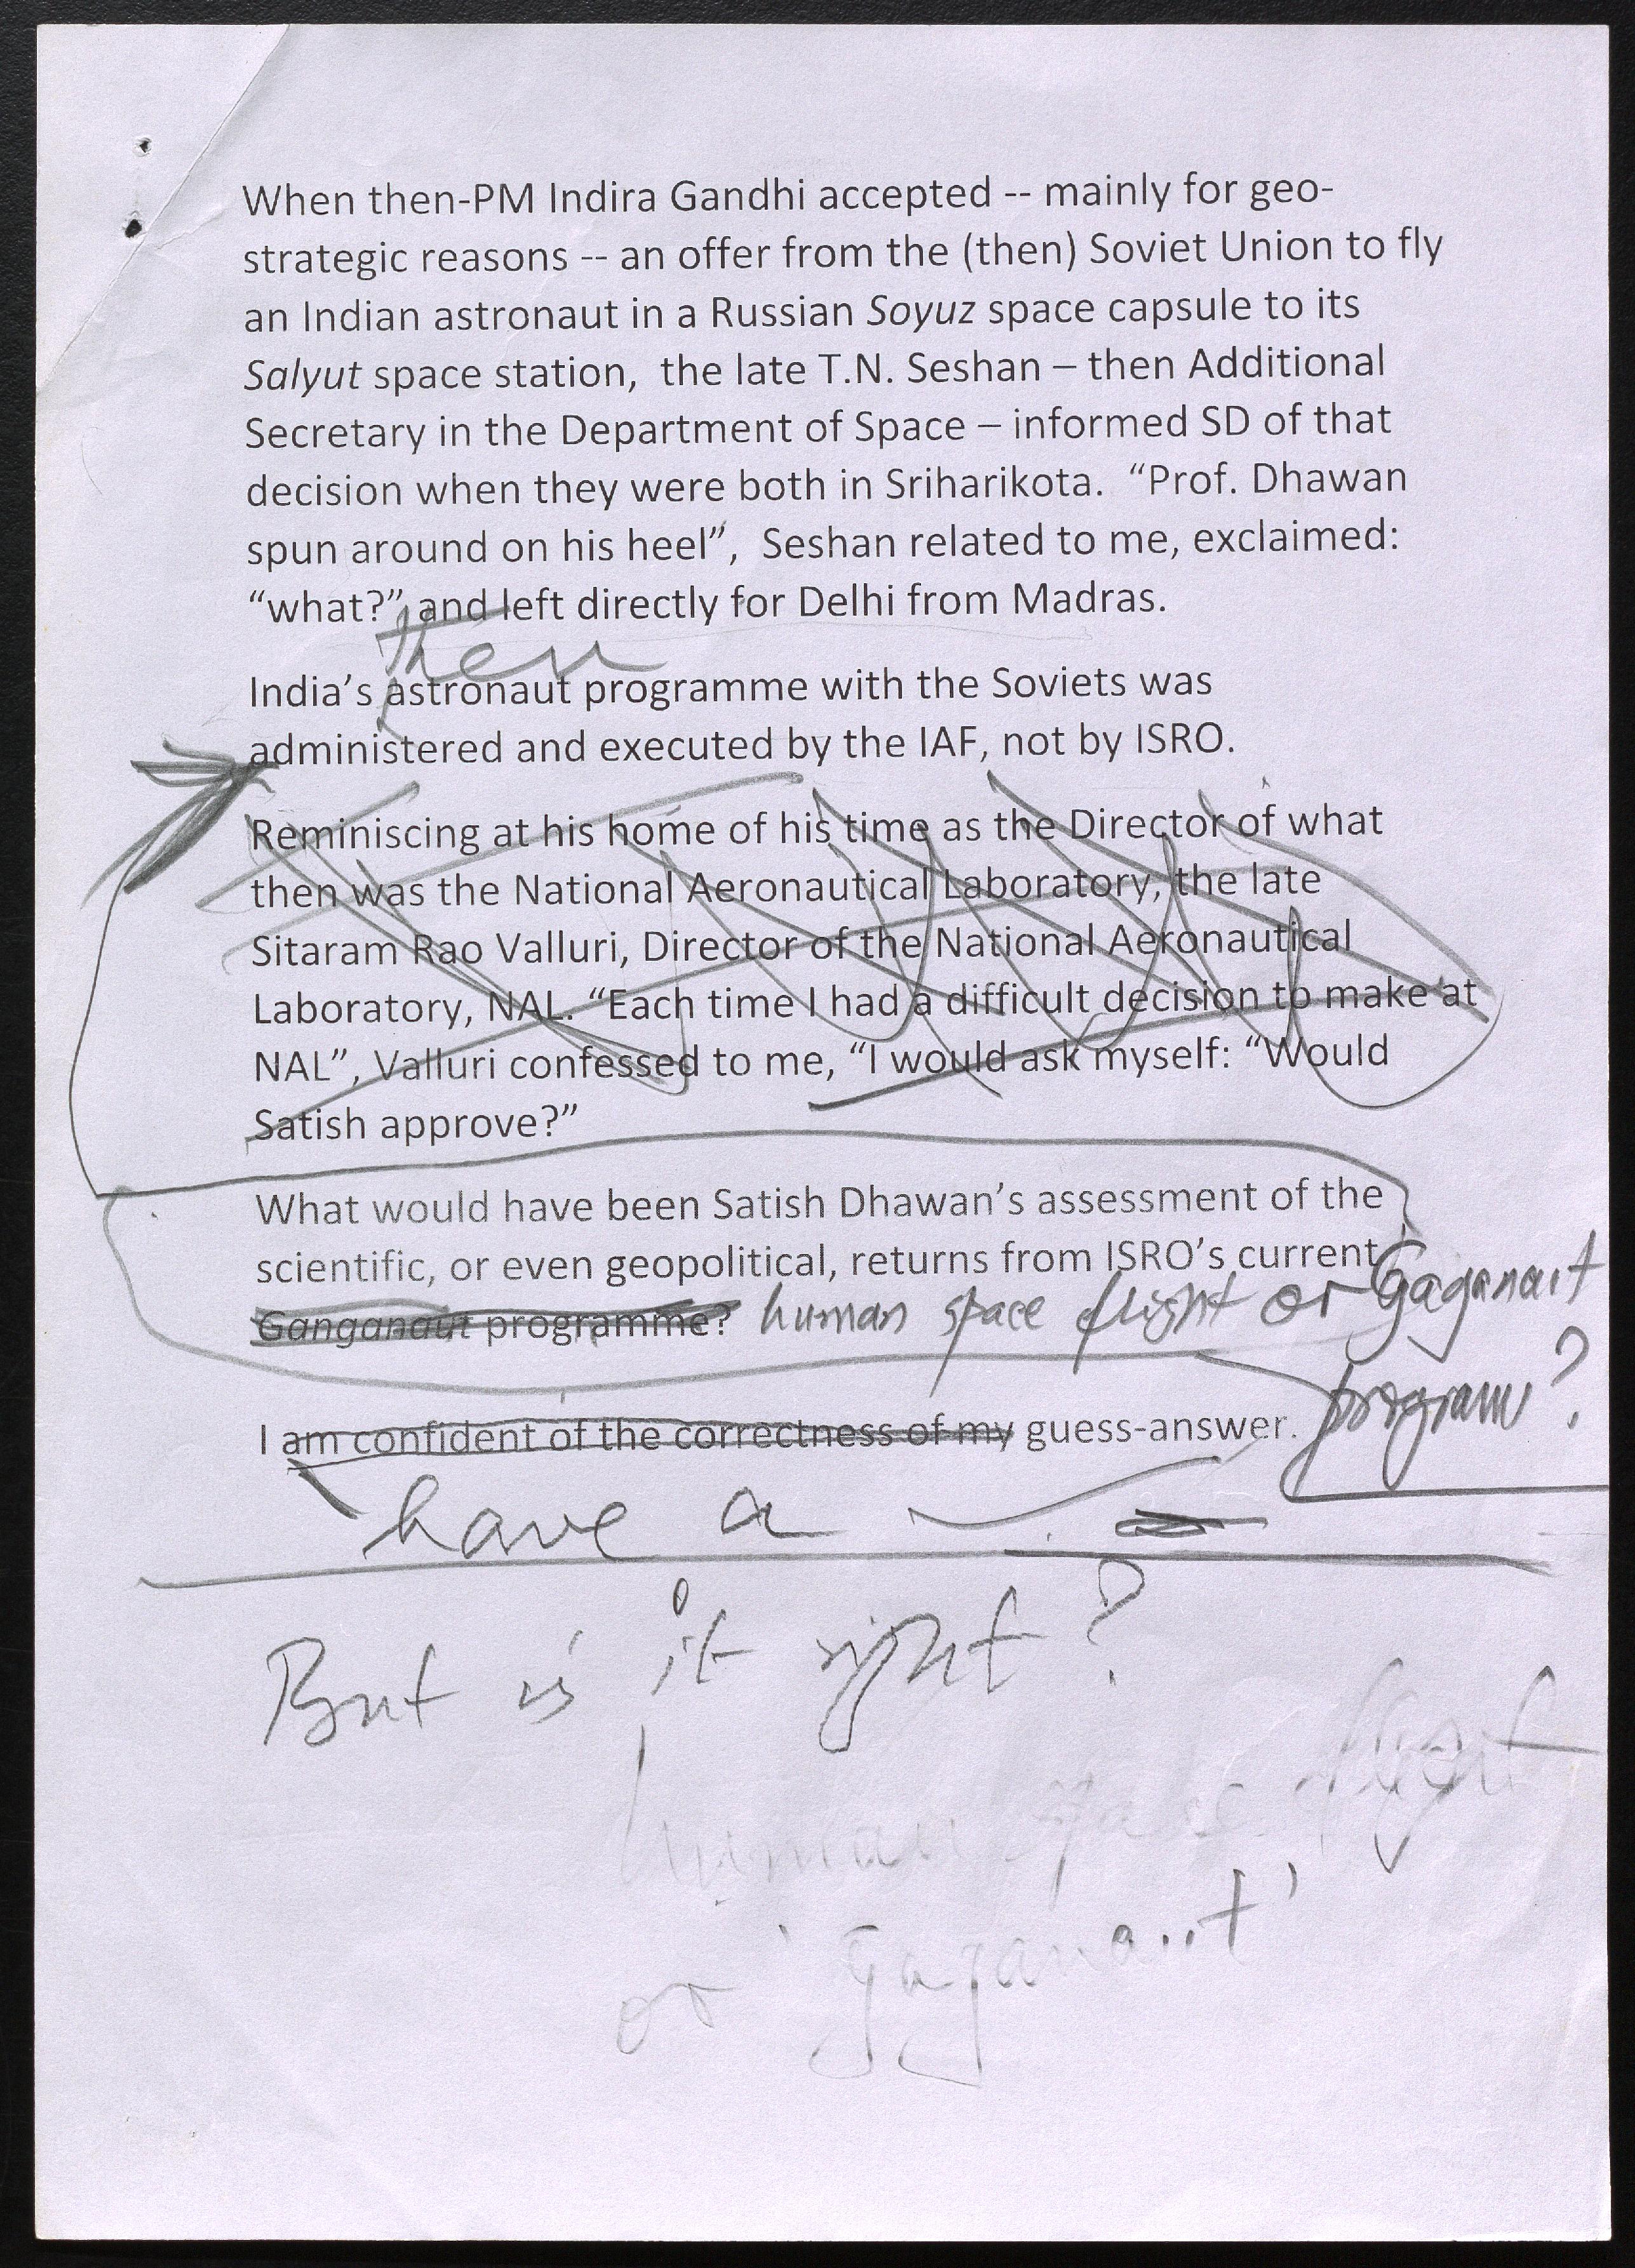 When then-PM Indira Gandhi accepted -- mainly for geo-
strategic reasons -- an offer from the (then) Soviet Union to fly
an Indian astronaut in a Russian Soyuz space capsule to its
Salyut space station,  the late T.N. Seshan – then Additional
Secretary in the Department of Space – informed SD of that
decision when they were both in Sriharikota.  “Prof. Dhawan
spun around on his heel”,  Seshan related to me, exclaimed:
“what?” and left directly for Delhi from Madras.
then
India’s astronaut programme with the Soviets was
administered and executed by the IAF, not by ISRO.
Reminiscing at his home of his time as the Director of what
then was the National Aeronautical Laboratory, the late
Sitaram Rao Valluri, Director of the National Aeronautical
Laboratory, NAL. “Each time I had a difficult decision to make at
NAL”, Valluri confessed to me, “I would ask myself: “Would
Satish approve?”
What would have been Satish Dhawan’s assessment of the
scientific, or even geopolitical, returns from ISRO’s current
Ganganaut programme? human space flight or Gaganaut
program?
I am confident of the correctness of my guess-answer.
have a
But is it right?
human space flight
or 'gaganaut'